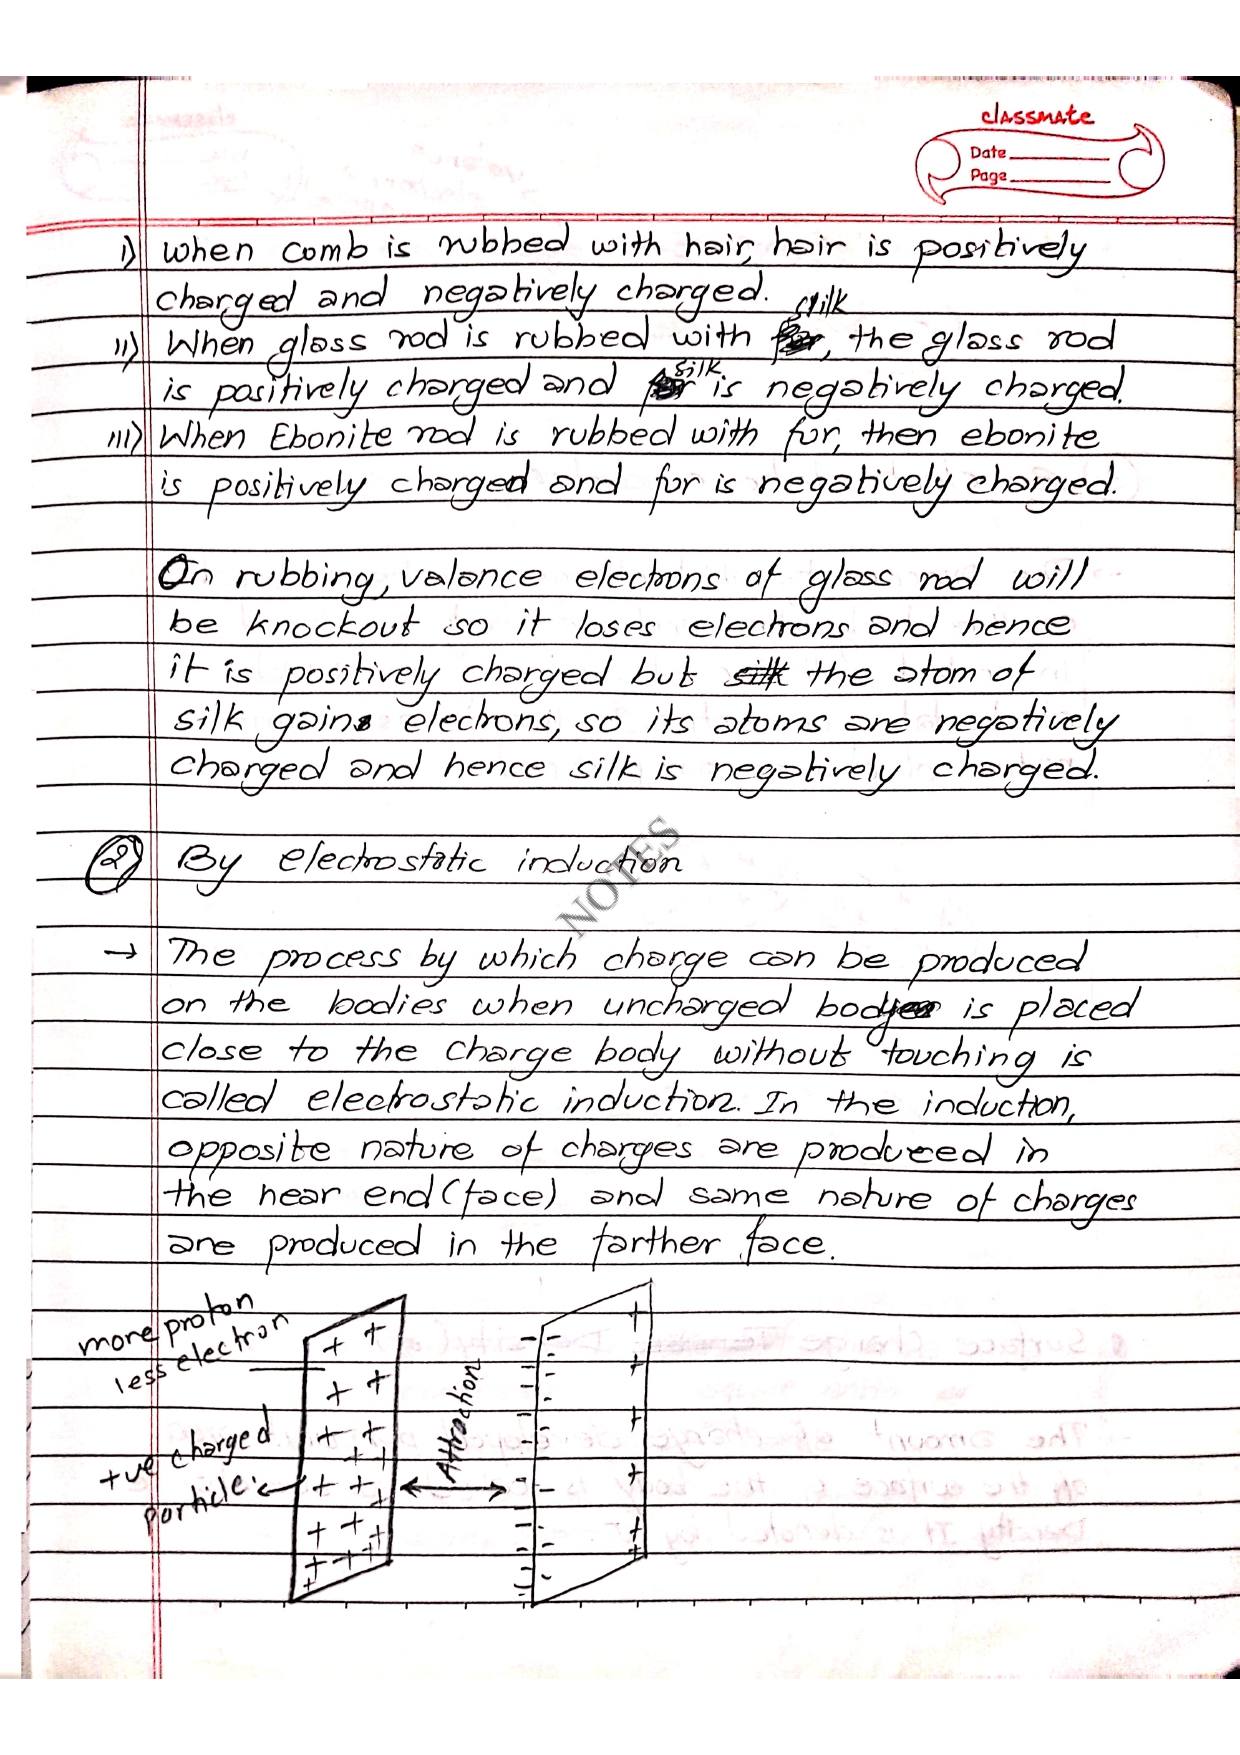 classmate
Date
Page
i) When comb is rubbed with hair, hair is positively
charged and negatively charged.
ii) When glass rod is rubbed with silk, the glass rod
is positively charged and silk is negatively charged.
iii) When Ebonite rod is rubbed with fur, then ebonite
is positively charged and fur is negatively charged.
On rubbing, valance electrons of glass rod will
be knockout so it loses electrons and hence
it is positively charged but silk the atom of
silk gains electrons, so its atoms are negatively
charged and hence silk is negatively charged.
2) By electrostatic induction
NOTES
→ The process by which charge can be produced
on the bodies when uncharged body is placed
close to the charge body without touching is
called electrostatic induction. In the induction,
opposite nature of charges are produced in
the near end (face) and same nature of charges
are produced in the farther face.
more proton
less electron
+ve charged
particle
Attraction